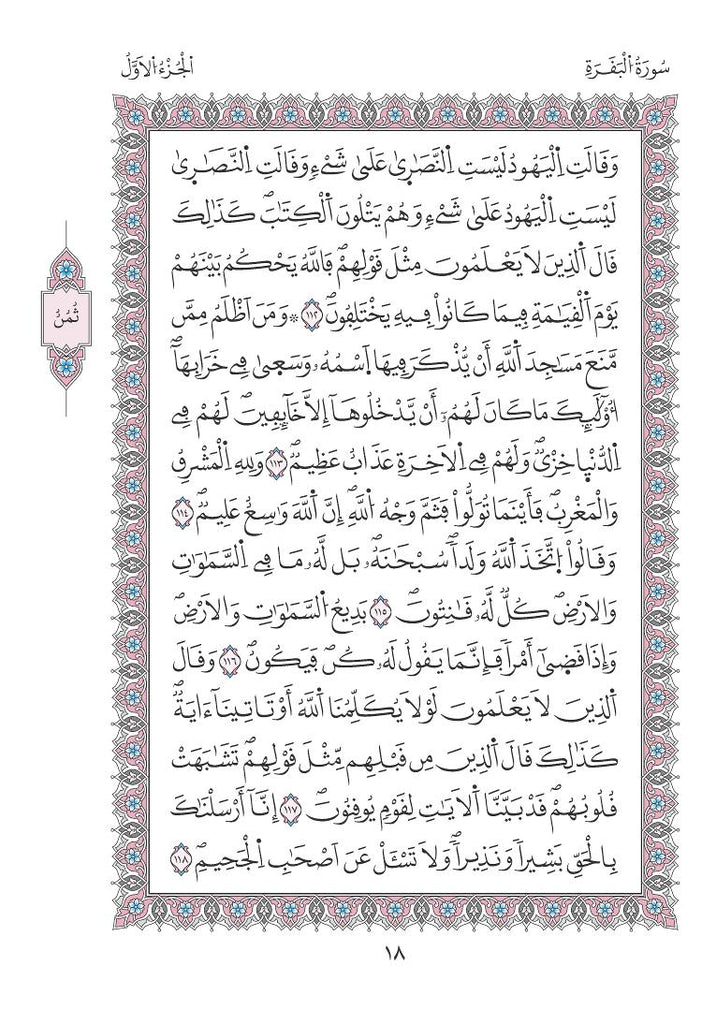 سُورَةُ الْبَقَرَةِ
الْجُزْءُ الْأَوَّلُ
وَقَالَتِ اِلْيَهُودُ لَيْسَتِ اِلنَّصَٰرِىٰ عَلَىٰ شَےْءٖ وَقَالَتِ اِلنَّصَٰرِىٰ
لَيْسَتِ اِلْيَهُودُ عَلَىٰ شَےْءٖ وَهُمْ يَتْلُونَ اَلْكِتَٰبَۖ كَذَٰلِكَ
قَالَ اَلذِينَ لَا يَعْلَمُونَ مِثْلَ قَوْلِهِمْۖ فَاللَّهُ يَحْكُمُ بَيْنَهُمْ
يَوْمَ اَلْقِيَٰمَةِ فِيمَا كَانُواْ فِيهِ يَخْتَلِفُونَۖ ١١٢ ۞ وَمَنَ اَظْلَمُ مِمَّن
مَّنَعَ مَسَٰجِدَ اَللَّهِ أَنْ يُّذْكَرَ فِيهَا اَسْمُهُۥ وَسَعىٰ فِے خَرَابِهَآۖ
أُوْلَٰٓئِكَ مَا كَانَ لَهُمُۥٓ أَنْ يَّدْخُلُوهَآ إِلَّا خَآئِفِينَۖ لَهُمْ فِے
اِلدُّنْيٖا خِزْيٞۖ وَلَهُمْ فِے اِلَاخِرَةِ عَذَابٌ عَظِيمٞۖ ١١٣ وَلِلهِ اِلْمَشْرِقُ
وَالْمَغْرِبُۖ فَأَيْنَمَا تُوَلُّواْ فَثَمَّ وَجْهُ اُللَّهِۖ إِنَّ اَللَّهَ وَٰسِعٌ عَلِيمٞۖ ١١٤
وَقَالُواْ اُ۪تَّخَذَ اَللَّهُ وَلَداٗۖ سُبْحَٰنَهُۥۖ بَل لَّهُۥ مَا فِے اِلسَّمَٰوَٰتِ
وَالَارْضِۖ كُلّٞ لَّهُۥ قَٰنِتُونَۖ ١١٥ بَدِيعُ اُلسَّمَٰوَٰتِ وَالَارْضِۖ
وَإِذَا قَضىٰٓ أَمْراٗ فَإِنَّمَا يَقُولُ لَهُۥ كُن فَيَكُونُۖ ١١٦ وَقَالَ
اَلذِينَ لَا يَعْلَمُونَ لَوْلَا يُكَلِّمُنَا اَللَّهُ أَوْ تَاتِينَآ ءَايَةٞۖ
كَذَٰلِكَ قَالَ اَلذِينَ مِن قَبْلِهِم مِّثْلَ قَوْلِهِمْۖ تَشَٰبَهَتْ
قُلُوبُهُمْۖ قَدْ بَيَّنَّا اَلَايَٰتِ لِقَوْمٖ يُوقِنُونَۖ ١١٧ إِنَّآ أَرْسَلْنَٰكَ
بِالْحَقِّ بَشِيراٗ وَنَذِيراٗۖ وَلَا تَسْـَٔلْ عَنَ اَصْحَٰبِ اِلْجَحِيمِۖ ١١٨
ثُمُنُ
١٨